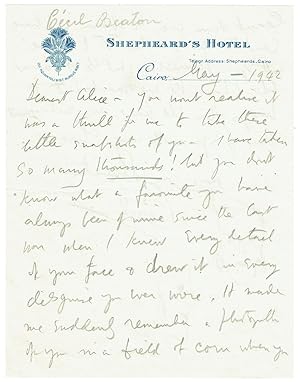 Cecil Beaton
SHEPHEARD'S HOTEL
Telegr. Address: Shepheards, Cairo
Cairo, May — 1942
Dearest Alice – you wont realise it
was a thrill for me to take these
little snapshots of you. I have taken
so many thousands! but you don't
know what a favourite you have
always been of mine since the last
war when I knew every detail
of your face & drew it in every
disguise you ever wore. It made
me suddenly remember a photograph
of you in a field of corn when you